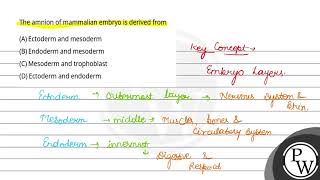 The amnion of mammalian embryo is derived from
(A) Ectoderm and mesoderm
(B) Endoderm and mesoderm
(C) Mesoderm and trophoblast
(D) Ectoderm and endoderm
Key Concept →
Embryo Layers
Ectoderm → outermost layer → Nervous System & Skin.
Mesoderm → middle → Muscles, bones & Circulatory System
Endoderm → innermost → Digestive & Respirat
PW